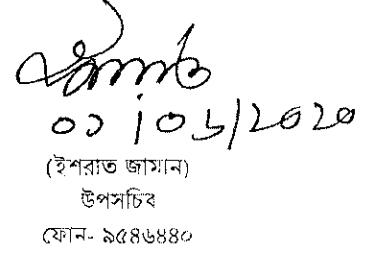 ০১/০৬/২০২০
(ইশরাত জামান)
উপসচিব
ফোন- ৯৫৪৬৪৪০